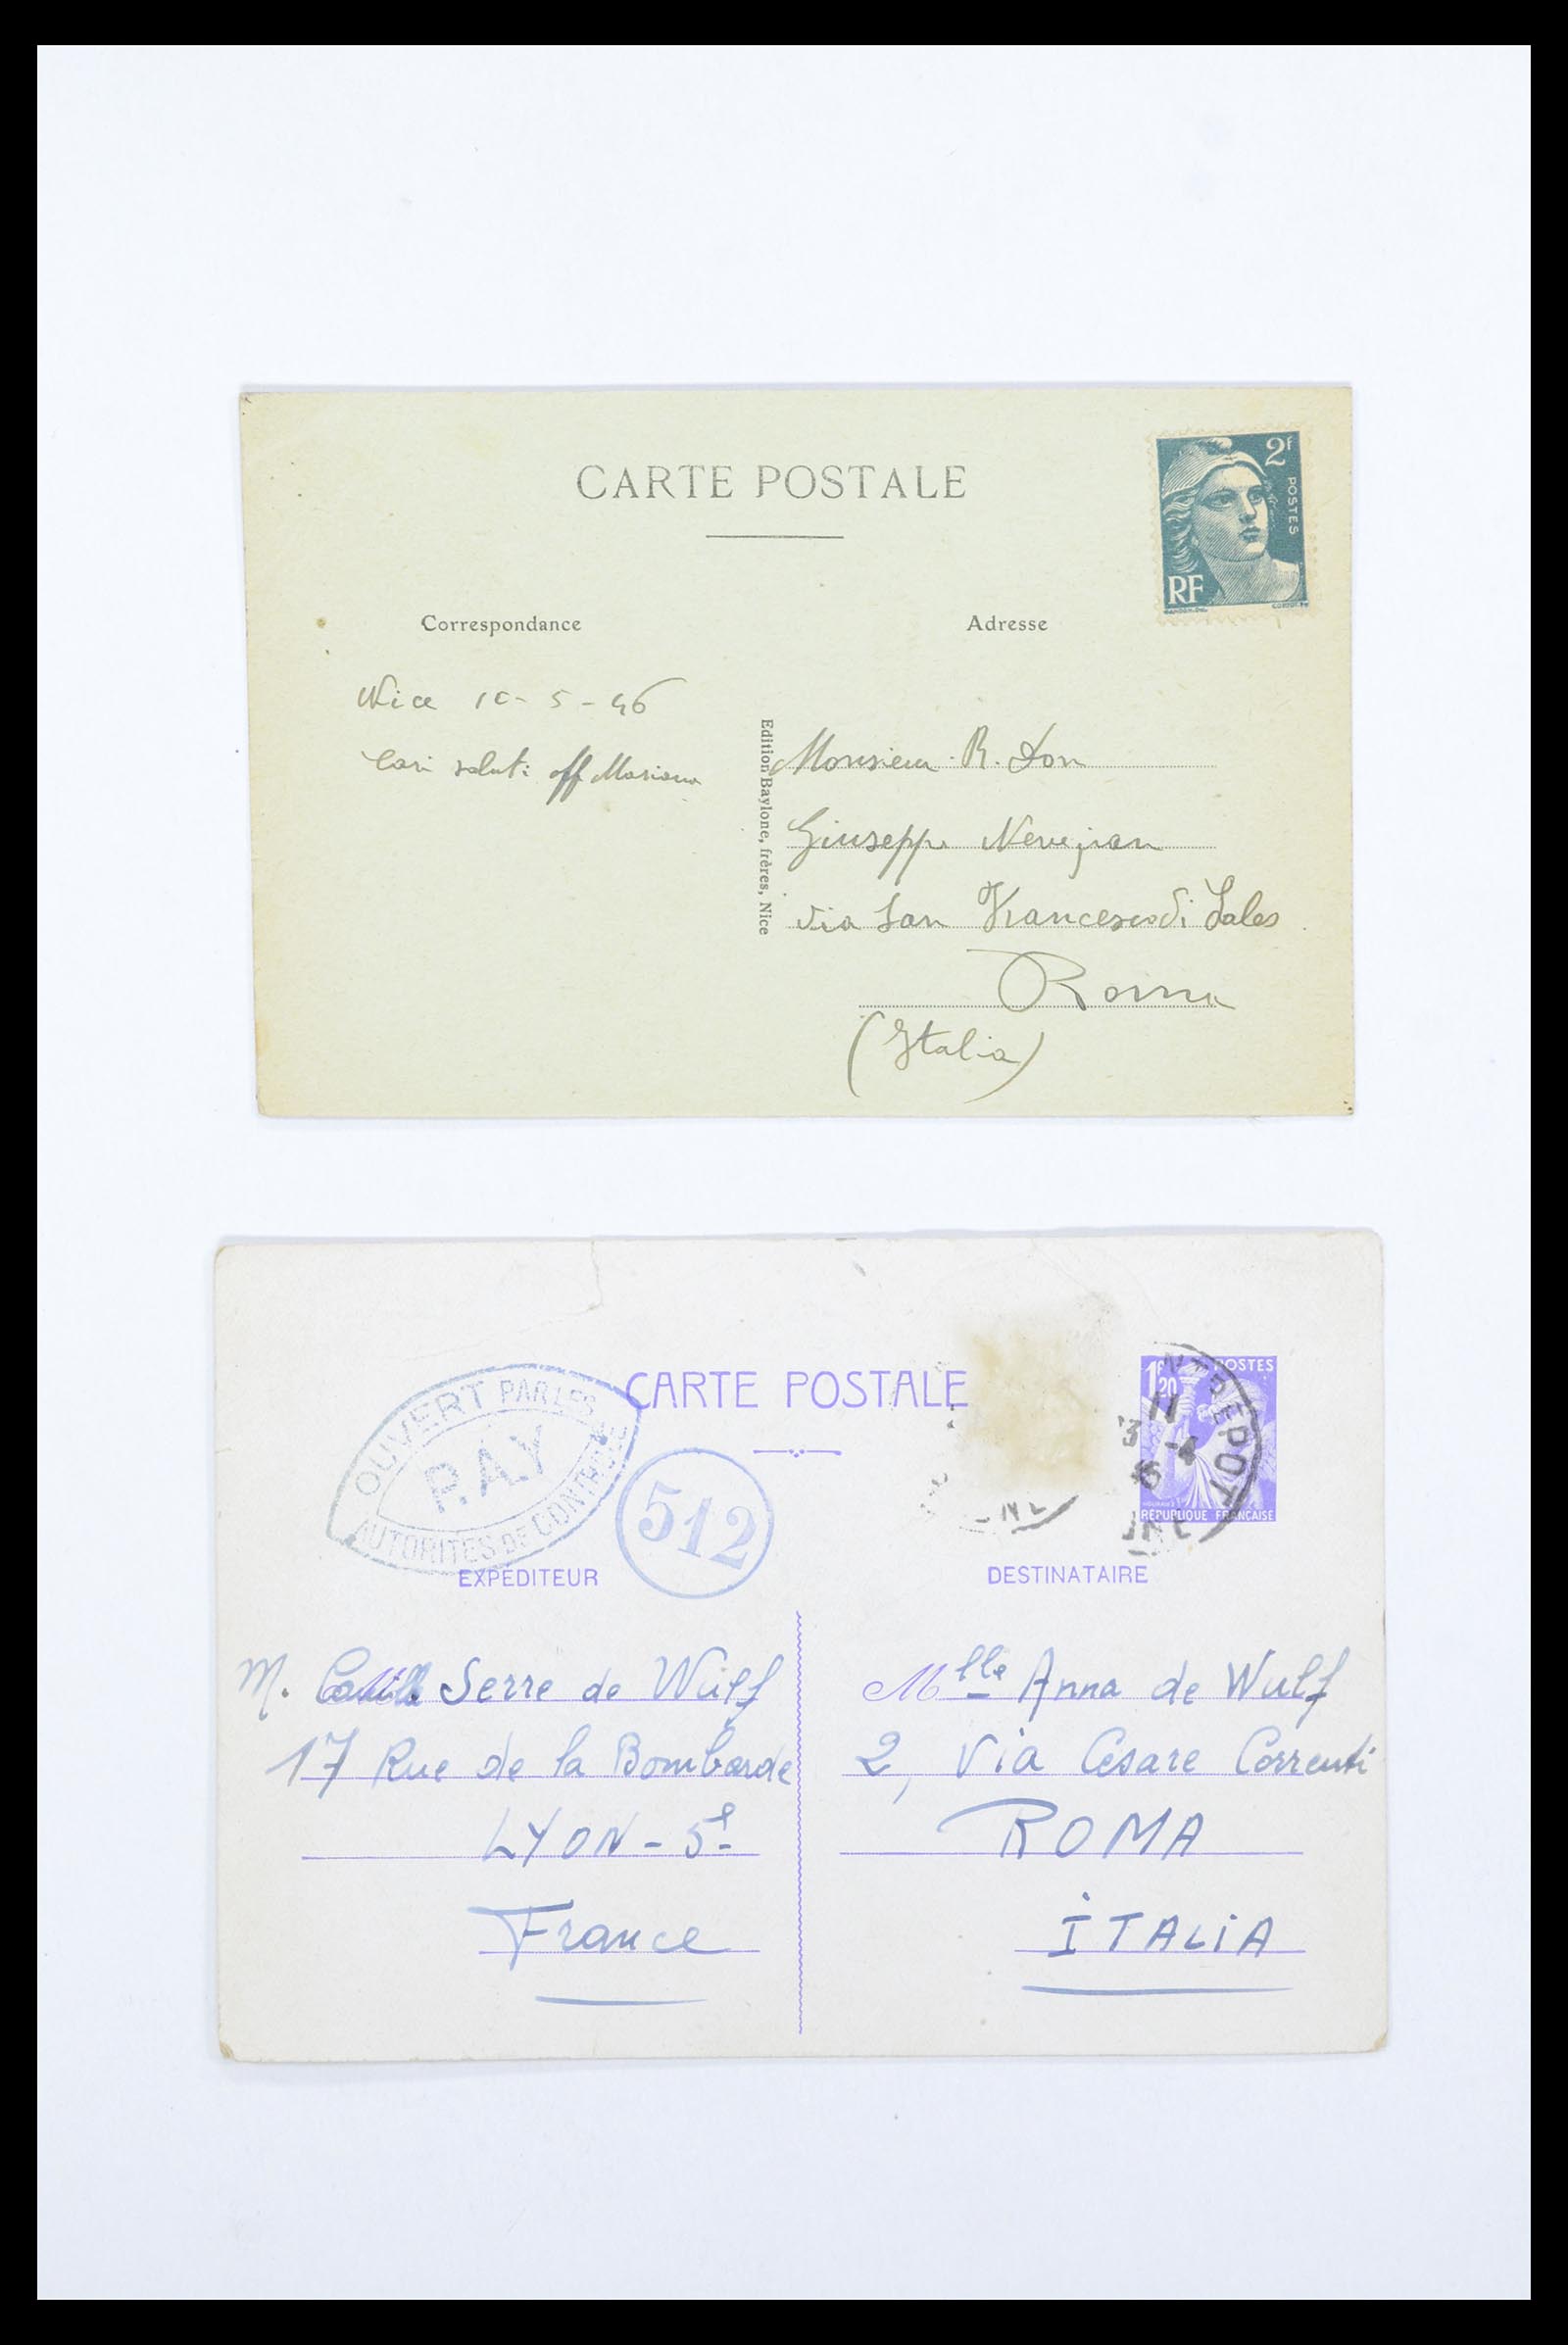 CARTE POSTALE
2f
POSTES
RF
Correspondance
Adresse
Nice 10-5-46
Cari saluti aff Mariana
Edition Baylone, frères, Nice
Monsieur R. Don
Giuseppe
via San Francesco di Sales
Roma
(Italia)
CARTE POSTALE
OUVERT PAR LES
P.A.Y
AUTORITES DE CONTROLE
512
1f20
POSTES
RÉPUBLIQUE FRANÇAISE
NTREPOT
11
13 -4
EXPÉDITEUR
DESTINATAIRE
M. Serre de Wulf
17 Rue de la Bombarde
LYON - 5e
France
Mlle Anna de Wulf
2, Via Cesare Correnti
ROMA
ITALIA